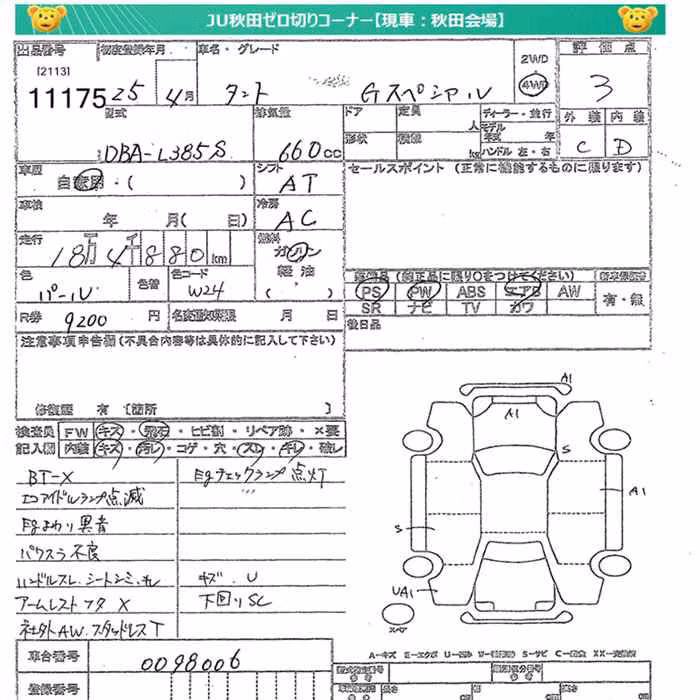 JU秋田ゼロ切りコーナー【現車：秋田会場】
出品番号 初度登録年月 車名・グレード 2WD 4WD 評価点
[2113]
11175 25 4月 タント Gスペシャル 3
型式 排気量 ドア 定員 人 ディーラー・並行 外装 内装
DBA-L385S 660cc 形状 積載 kg モデル年式 年 ハンドル 左・右 C D
車歴 自家用・( ) シフト AT セールスポイント (正常に機能するものに限ります)
車検 年 月( 日) 冷房 AC
走行 18万4千880km 燃料 ガソリン 軽油 ( )
色 パール 色替 色コード W24
装備品(純正品に限り○をつけてください)
PS PW ABS エアB AW 有・無
SR ナビ TV カワ
R券 9200円 名変通知期限 月 日 後日品
注意事項申告欄(不具合内容等は具体的に記入して下さい)
修復歴 有 [箇所 ]
検査員 FW キズ・飛石・ヒビ割・リペア跡・×要
記入欄 内装 キズ・汚レ・コゲ・穴・スレ・キレ・破レ
BT-X
Egチェックランプ点灯
エコアイドルランプ点滅
Egまわり異音
パワスラ不良
ハンドルスレ、シートシミ、キレ
キズ、U
アームレストフタX
下回りSC
社外AW、スタッドレスT
A1
A1
S
A1
S
UA1
スペア
車台番号 0098006
登録番号
A-キズ E-エクボ U-凹み W-補修跡 S-サビ C-腐食 XX-交換済